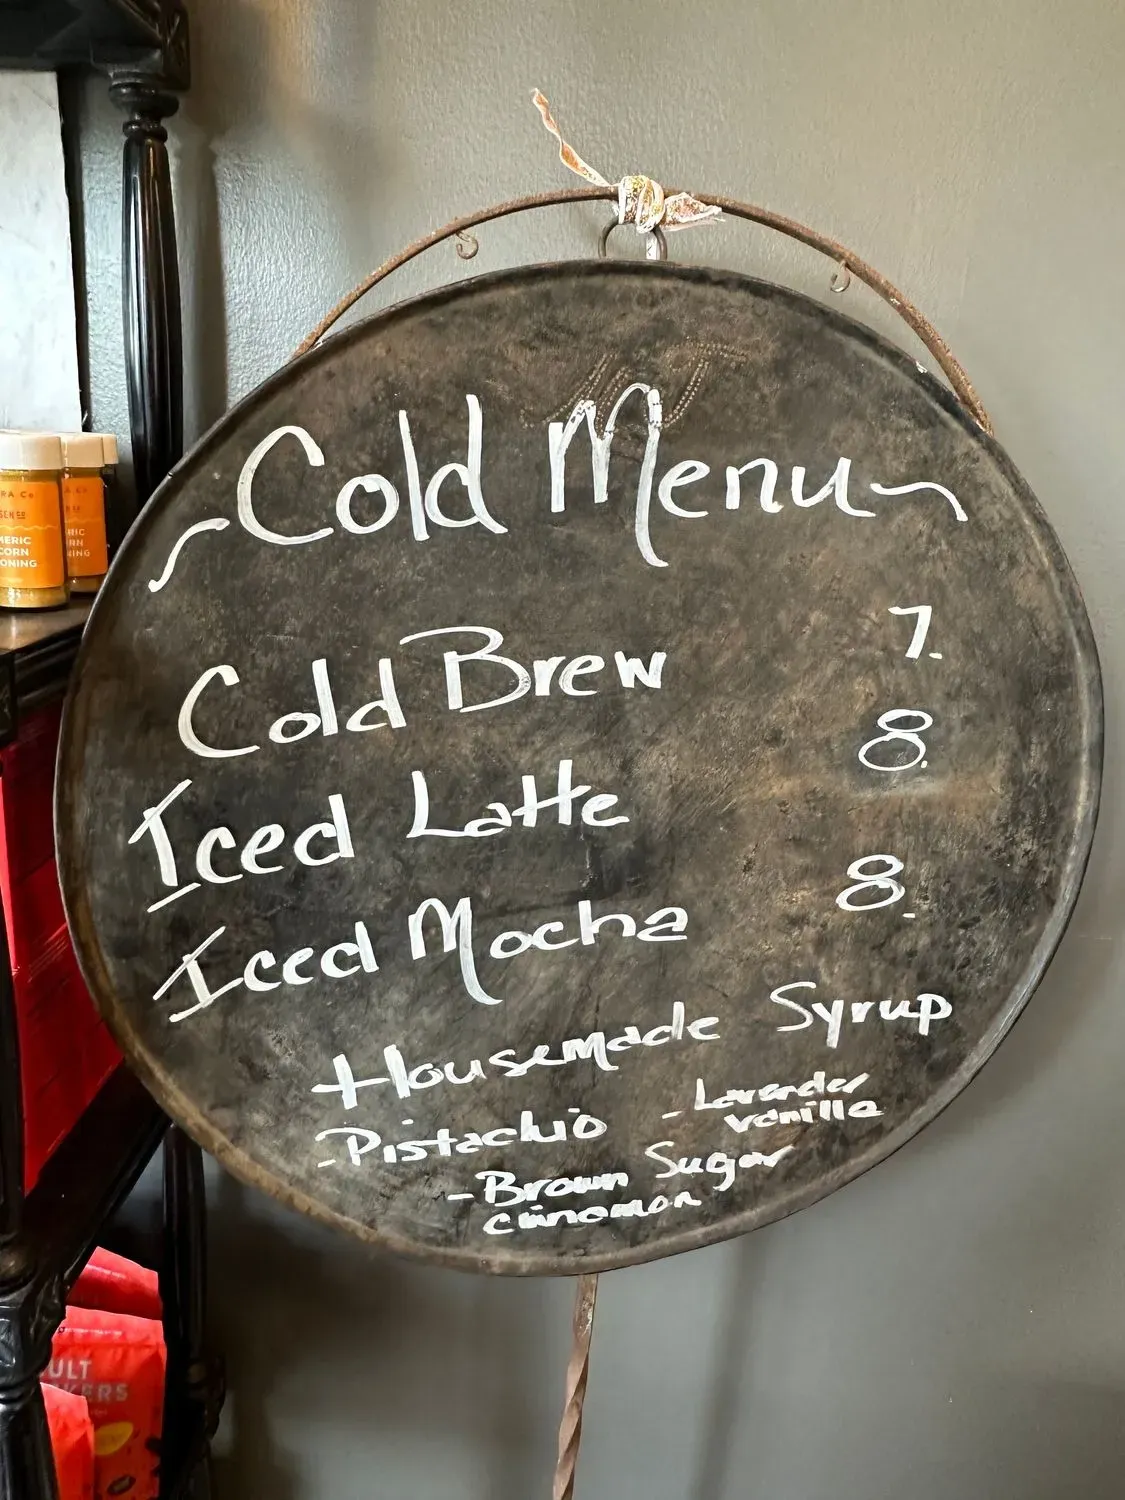 ~Cold Menu~
Cold Brew 7.
Iced Latte 8.
Iced Mocha 8.
Housemade Syrup
-Pistachio
-Lavender
vanilla
-Brown Sugar
cinnamon
RA Co
MERIC
CORN
ONING
RIC
RN
NING
ULT
KERS